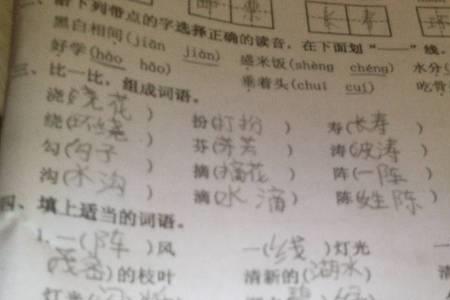 给下列带点的字选择正确的读音，在下面划“——”线。
黑白相间(jiān jiàn) 盛米饭(shèng chéng) 水分(
好学(hǎo hào) 垂着头(chuí cuí) 吃
三、比一比，组成词语。
浇(浇花)
绕(环绕) 扮(打扮) 寿(长寿)
勾(勾子) 芬(芬芳) 涛(波涛)
沟(水沟) 摘(摘花) 阵(一阵)
滴(水滴) 陈(姓陈)
四、填上适当的词语。
1.一(阵)风 一(线)灯光 一
(茂密)的枝叶 清新的(湖水)
灯光